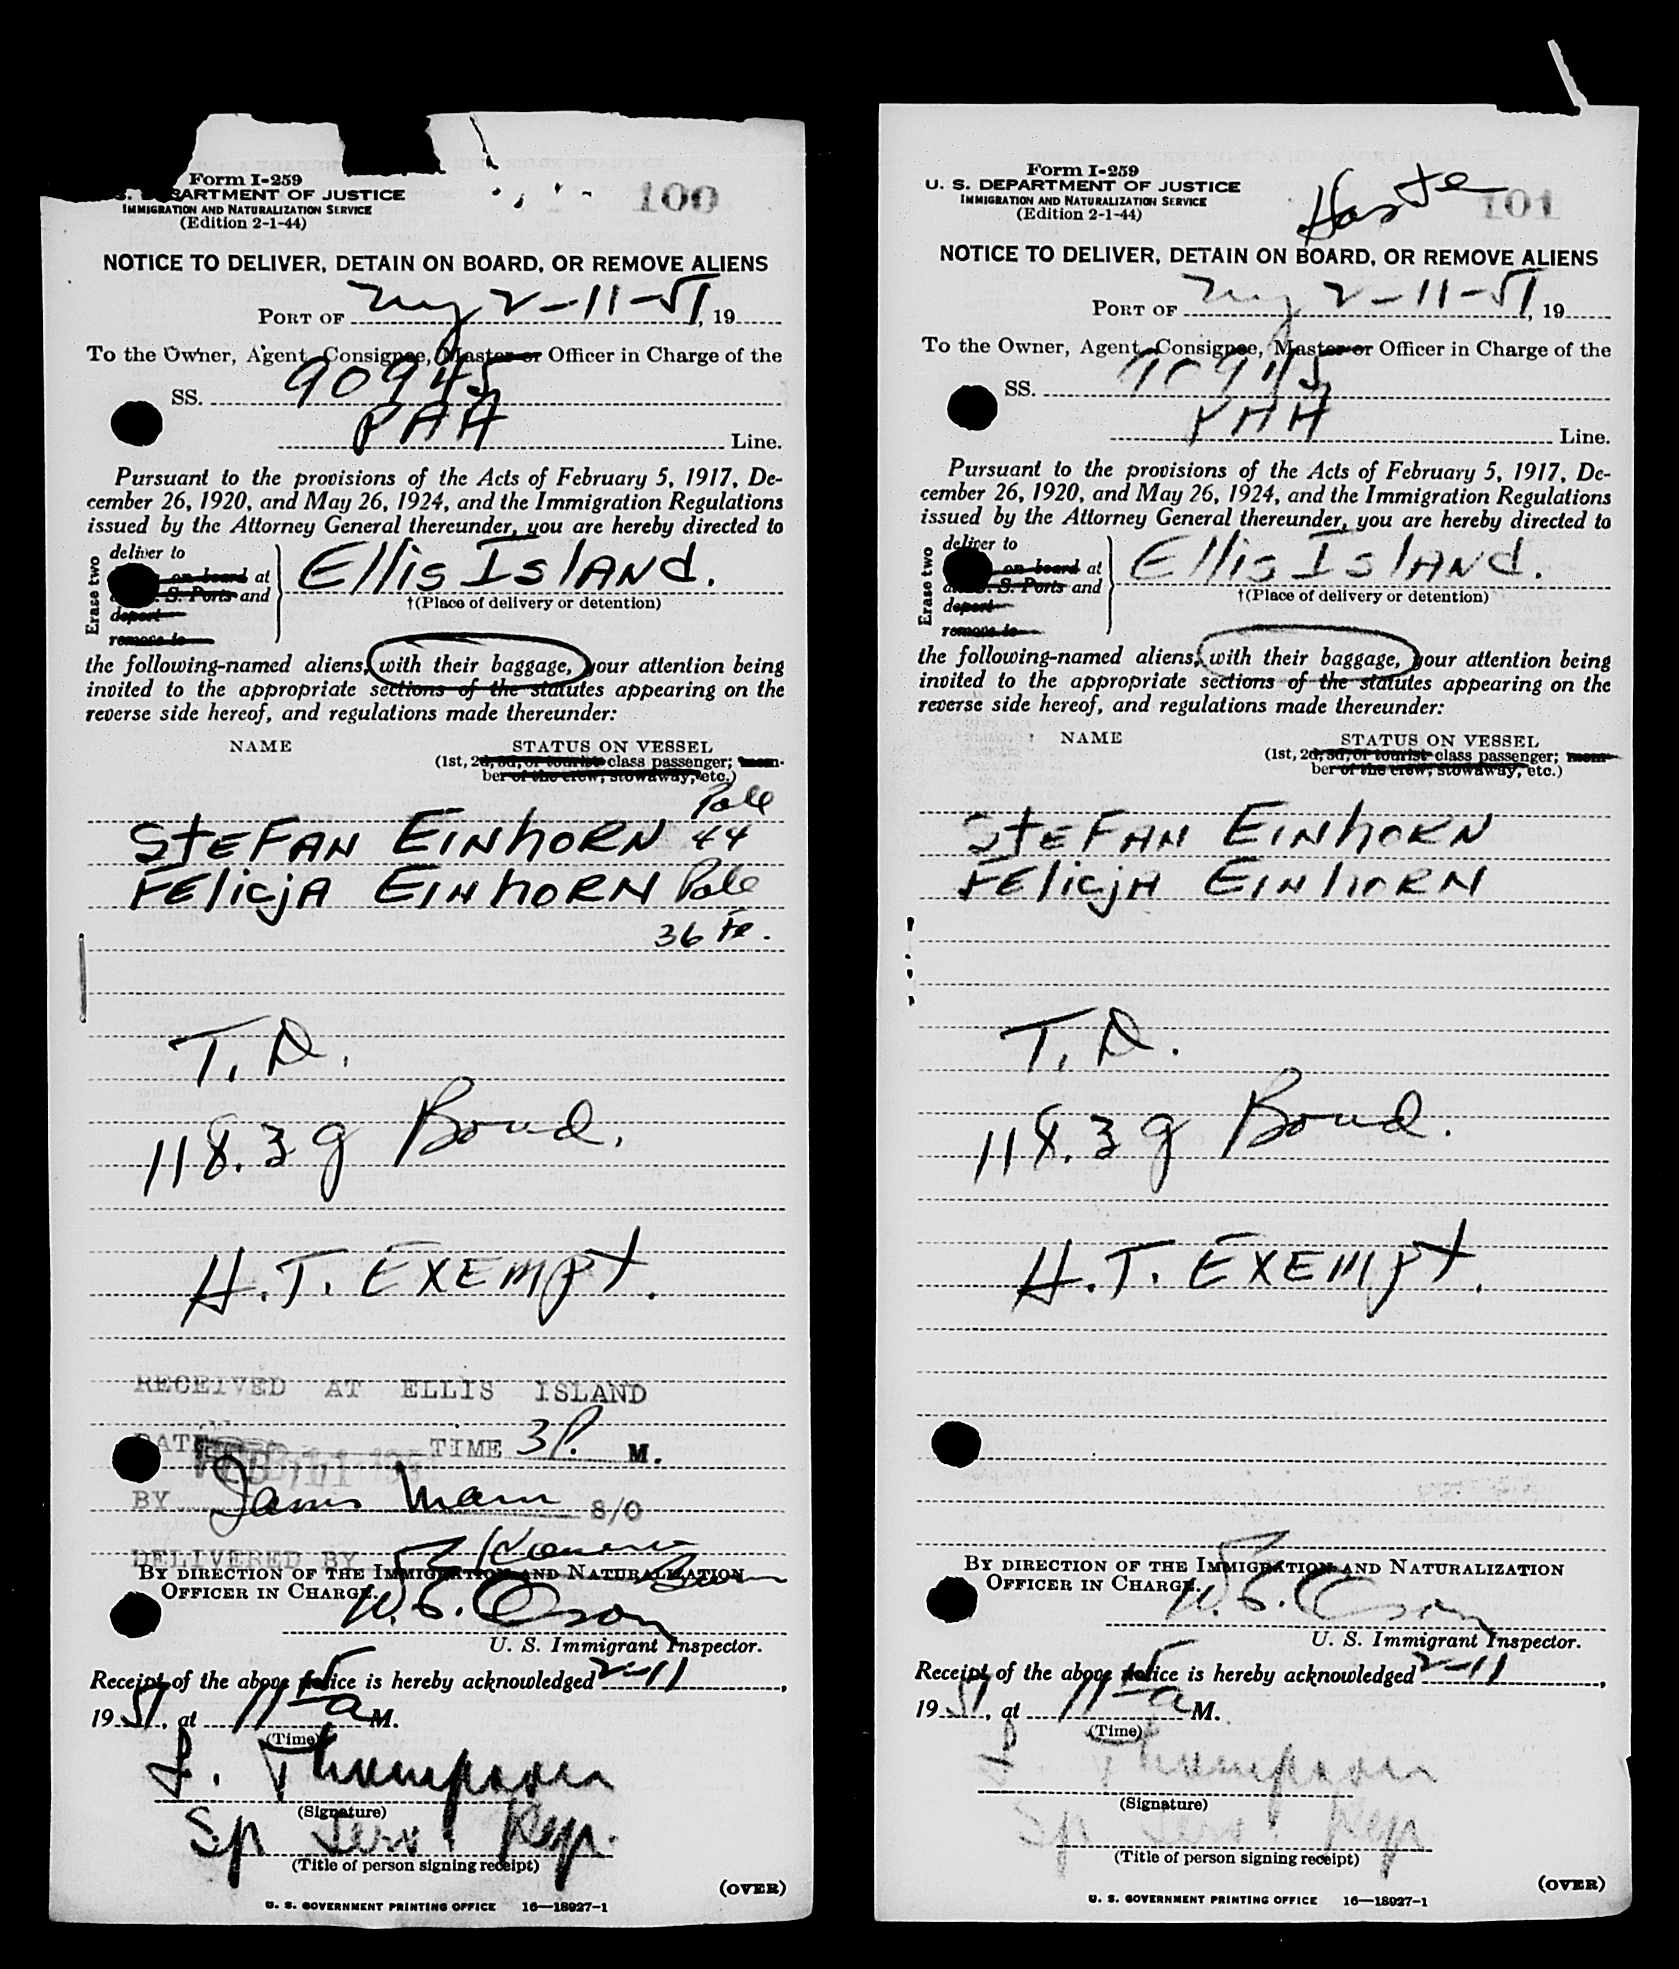 Form I-259
U. S. DEPARTMENT OF JUSTICE
IMMIGRATION AND NATURALIZATION SERVICE
(Edition 2-1-44)
100
NOTICE TO DELIVER, DETAIN ON BOARD, OR REMOVE ALIENS
PORT OF NY 2-11-51, 19
To the Owner, Agent, Consignee, Master or Officer in Charge of the
SS. 90945
PAA Line.
Pursuant to the provisions of the Acts of February 5, 1917, De-
cember 26, 1920, and May 26, 1924, and the Immigration Regulations
issued by the Attorney General thereunder, you are hereby directed to
Erase two
deliver to
on board at
S. Ports and
deport
remove to
Ellis Island.
†(Place of delivery or detention)
the following-named aliens, with their baggage, your attention being
invited to the appropriate sections of the statutes appearing on the
reverse side hereof, and regulations made thereunder:
NAME STATUS ON VESSEL
(1st, 2d, 3d, or tourist class passenger; mem-
ber of the crew, stowaway, etc.)
Pole
STEFAN EINHORN 44
FELICJA EINHORN Pole
36 Fe.
T. D.
118.3 g Bond.
H.T. EXEMPT.
RECEIVED AT ELLIS ISLAND
DATE FEB 11 1951 TIME 3 P. M.
BY James S/O
DELIVERED BY
BY DIRECTION OF THE IMMIGRATION AND NATURALIZATION
OFFICER IN CHARGE.
U. S. Immigrant Inspector.
Receipt of the above notice is hereby acknowledged 2-11,
1951, at 11 15 a M.
(Time)
L. Thompson
(Signature)
Sp Serv. Rep.
(Title of person signing receipt)
(OVER)
U. S. GOVERNMENT PRINTING OFFICE 16—18927-1
Form I-259
U. S. DEPARTMENT OF JUSTICE
IMMIGRATION AND NATURALIZATION SERVICE
(Edition 2-1-44)
Haste
101
NOTICE TO DELIVER, DETAIN ON BOARD, OR REMOVE ALIENS
PORT OF NY 2-11-51, 19
To the Owner, Agent, Consignee, Master or Officer in Charge of the
SS. 90945
PAA Line.
Pursuant to the provisions of the Acts of February 5, 1917, De-
cember 26, 1920, and May 26, 1924, and the Immigration Regulations
issued by the Attorney General thereunder, you are hereby directed to
Erase two
deliver to
on board at
S. Ports and
deport
remove to
Ellis Island.
†(Place of delivery or detention)
the following-named aliens, with their baggage, your attention being
invited to the appropriate sections of the statutes appearing on the
reverse side hereof, and regulations made thereunder:
NAME STATUS ON VESSEL
(1st, 2d, 3d, or tourist class passenger; mem-
ber of the crew, stowaway, etc.)
STEFAN EINHORN
FELICJA EINHORN
T. D.
118.3 g Bond.
H.T. EXEMPT.
BY DIRECTION OF THE IMMIGRATION AND NATURALIZATION
OFFICER IN CHARGE.
U. S. Immigrant Inspector.
Receipt of the above notice is hereby acknowledged 2-11,
1951, at 11 15 a M.
(Time)
L. Thompson
(Signature)
Sp Serv. Rep
(Title of person signing receipt)
(OVER)
U. S. GOVERNMENT PRINTING OFFICE 16—18927-1